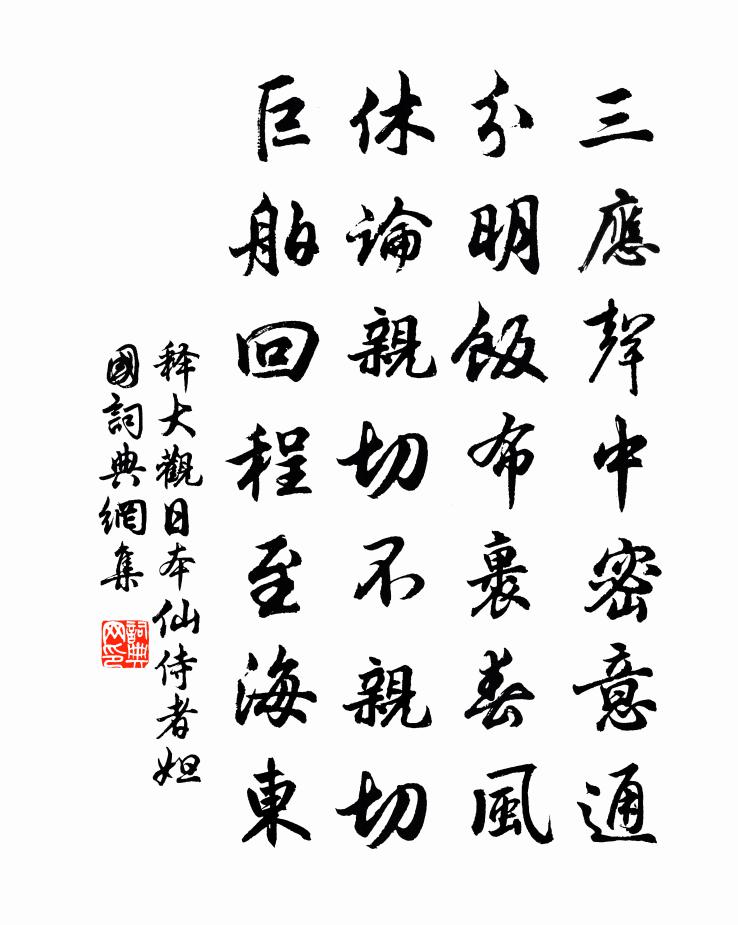 三應聲中密意通
分明飯布裹春風
休論親切不親切
巨舶回程至海東
释大觀日本仙侍者妲
國詞典網集
詞典網印